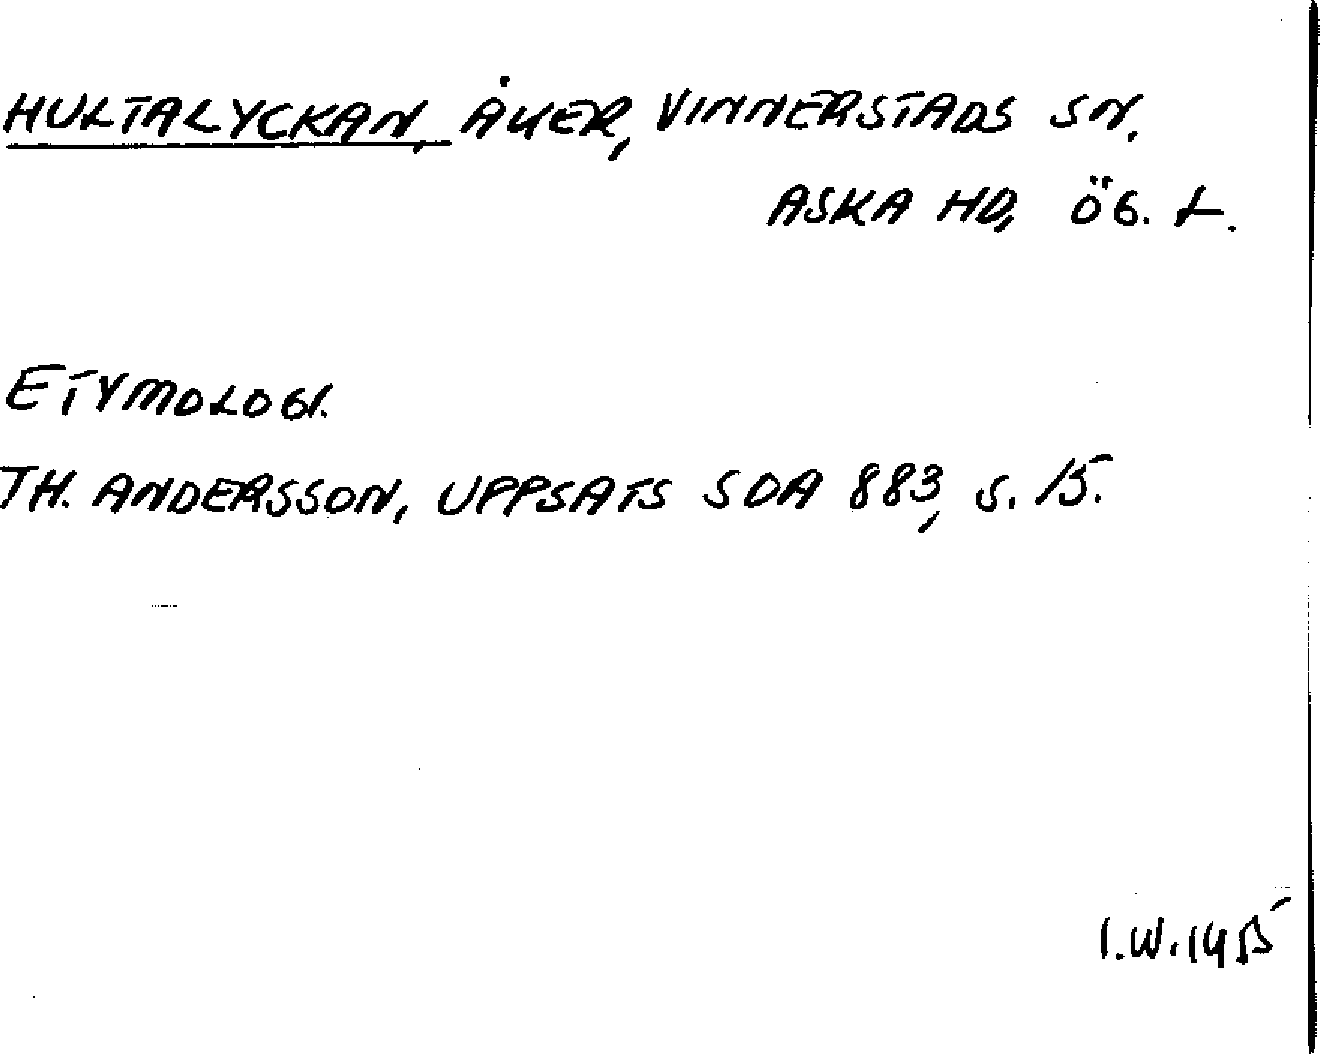 HULTALYCKAN, ÅKER, VINNERSTADS SN.
ASKA HD, ÖG. L.
ETYMOLOGI.
TH. ANDERSSON, UPPSATS SOA 883, S. 15.
I.W. 1955